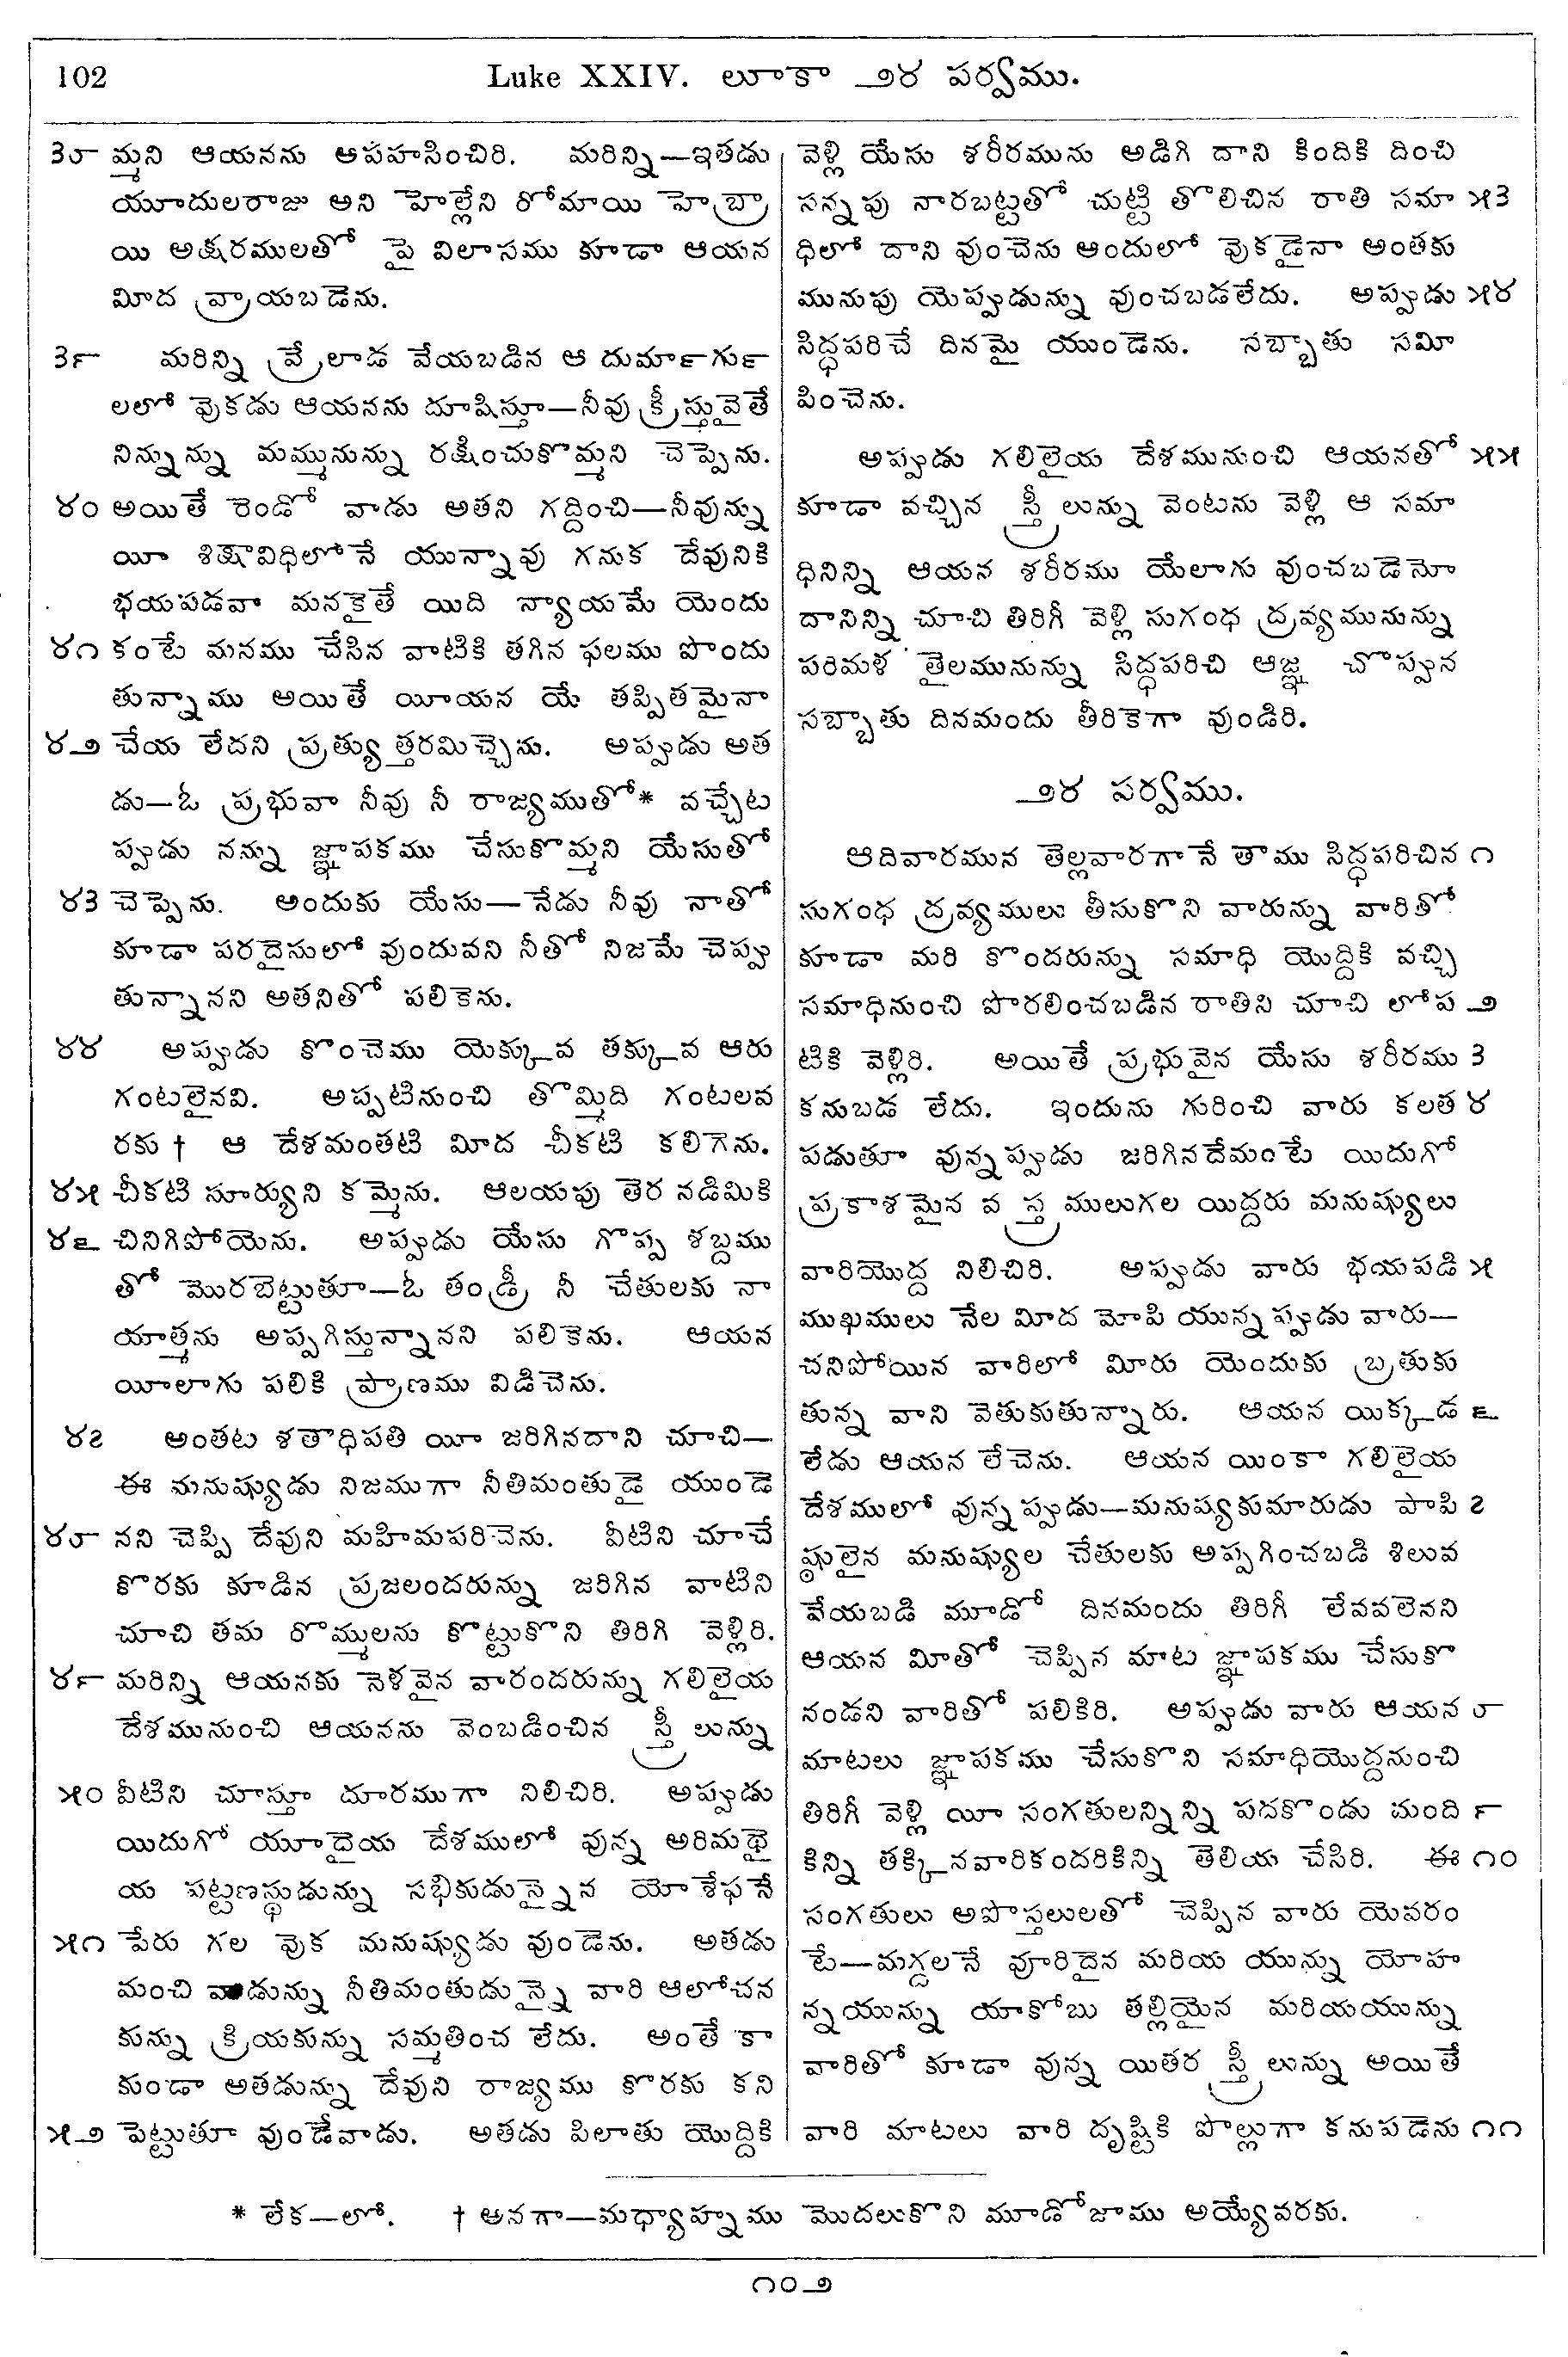 102 Luke XXIV. లూకా ౨౪ పర్వము.
౩౮ మ్మని ఆయనను అపహసించిరి. మరిన్ని—ఇతడు
యూదులరాజు అని హెల్లేని రోమాయి హెబ్రా
యి అక్షరములతో పై విలాసము కూడా ఆయన
మీద వ్రాయబడెను.
౩౯ మరిన్ని వ్రేలాడ వేయబడిన ఆ దుమార్గుర్
లలో వొకడు ఆయనను దూషిస్తూ—నీవు క్రీస్తువైతే
నిన్నున్ను మమ్మునున్ను రక్షించుకొమ్మని చెప్పెను.
౪౦ అయితే రెండో వాడు అతని గద్దించి—నీవున్ను
యీ శిక్షావిధిలోనే యున్నావు గనుక దేవునికి
భయపడవా మనకైతే యిది న్యాయమే యెందు
౪౧ కంటే మనము చేసిన వాటికి తగిన ఫలము పొందు
తున్నాము అయితే యీయన యే తప్పితమైనా
౪౨ చేయ లేదని ప్రత్యుత్తరమిచ్చెను. అప్పుడు అత
డు—ఓ ప్రభువా నీవు నీ రాజ్యముతో* వచ్చేట
ప్పుడు నన్ను జ్ఞాపకము చేసుకొమ్మని యేసుతో
౪౩ చెప్పెను. అందుకు యేసు—నేడు నీవు నాతో
కూడా పరదైసులో వుందువని నీతో నిజమే చెప్పు
తున్నానని అతనితో పలికెను.
౪౪ అప్పుడు కొంచెము యెక్కువ తక్కువ ఆరు
గంటలైనవి. అప్పటినుంచి తొమ్మిది గంటలవ
రకు † ఆ దేశమంతటి మీద చీకటి కలిగెను.
౪౫ చీకటి సూర్యుని కమ్మెను. ఆలయపు తెర నడిమికి
౪౬ చినిగిపోయెను. అప్పుడు యేసు గొప్ప శబ్దము
తో మొరబెట్టుతూ—ఓ తండ్రీ నీ చేతులకు నా
యాత్మను అప్పగిస్తున్నానని పలికెను. ఆయన
యీలాగు పలికి ప్రాణము విడిచెను.
౪౭ అంతట శతాధిపతి యీ జరిగినదాని చూచి—
ఈ మనుష్యుడు నిజముగా నీతిమంతుడై యుండె
౪౮ నని చెప్పి దేవుని మహిమపరిచెను. వీటిని చూచే
కొరకు కూడిన ప్రజలందరున్ను జరిగిన వాటిని
చూచి తమ రొమ్ములను కొట్టుకొని తిరిగి వెళ్లిరి.
౪౯ మరిన్ని ఆయనకు నెళవైన వారందరున్ను గలిలైయ
దేశమునుంచి ఆయనను వెంబడించిన స్త్రీలున్ను
౫౦ వీటిని చూస్తూ దూరముగా నిలిచిరి. అప్పుడు
యిదుగో యూదైయ దేశములో వున్న అరిమథై
య పట్టణస్థుడున్ను సభికుడున్నైన యోశేఫనే
౫౧ పేరు గల వొక మనుష్యుడు వుండెను. అతడు
మంచి వాడున్ను నీతిమంతుడున్నై వారి ఆలోచన
కున్ను క్రియకున్ను సమ్మతించ లేదు. అంతే కా
కుండా అతడున్ను దేవుని రాజ్యము కొరకు కని
౫౨ పెట్టుతూ వుండేవాడు. అతడు పిలాతు యొద్దికి
వెళ్లి యేసు శరీరమును అడిగి దాని కిందికి దించి
సన్నపు నారబట్టతో చుట్టి తొలిచిన రాతి సమా ౫౩
ధిలో దాని వుంచెను అందులో వొకడైనా అంతకు
మునుపు యెప్పుడున్ను వుంచబడలేదు. అప్పుడు ౫౪
సిద్ధపరిచే దినమై యుండెను. సబ్బాతు సమీ
పించెను.
అప్పుడు గలిలైయ దేశమునుంచి ఆయనతో ౫౫
కూడా వచ్చిన స్త్రీలున్ను వెంటను వెళ్లి ఆ సమా
ధినిన్ని ఆయన శరీరము యేలాగు వుంచబడెనో
దానిన్ని చూచి తిరిగీ వెళ్లి సుగంధ ద్రవ్యమునున్ను
పరిమళ తైలమునున్ను సిద్ధపరిచి ఆజ్ఞ చొప్పున
సబ్బాతు దినమందు తీరికెగా వుండిరి.
౨౪ పర్వము.
ఆదివారమున తెల్లవారగానే తాము సిద్ధపరిచిన ౧
సుగంధ ద్రవ్యములు తీసుకొని వారున్ను వారితో
కూడా మరి కొందరున్ను సమాధి యొద్దికి వచ్చి
సమాధినుంచి పొరలించబడిన రాతిని చూచి లోప ౨
టికి వెళ్లిరి. అయితే ప్రభువైన యేసు శరీరము ౩
కనుబడ లేదు. ఇందును గురించి వారు కలత ౪
పడుతూ వున్నప్పుడు జరిగినదేమంటే యిదుగో
ప్రకాశమైన వస్త్రములుగల యిద్దరు మనుష్యులు
వారియొద్ద నిలిచిరి. అప్పుడు వారు భయపడి ౫
ముఖములు నేల మీద మోపి యున్నప్పుడు వారు—
చనిపోయిన వారిలో మీరు యెందుకు బ్రతుకు
తున్న వాని వెతుకుతున్నారు. ఆయన యిక్కడ ౬
లేడు ఆయన లేచెను. ఆయన యింకా గలిలైయ
దేశములో వున్నప్పుడు—మనుష్యకుమారుడు పాపి ౭
ష్ఠులైన మనుష్యుల చేతులకు అప్పగించబడి శిలువ
వేయబడి మూడో దినమందు తిరిగీ లేవవలెనని
ఆయన మీతో చెప్పిన మాట జ్ఞాపకము చేసుకొ
నండని వారితో పలికిరి. అప్పుడు వారు ఆయన ౮
మాటలు జ్ఞాపకము చేసుకొని సమాధియొద్దనుంచి
తిరిగీ వెళ్లి యీ సంగతులన్నిన్ని పదకొండు మంది ౯
కిన్ని తక్కినవారికందరికిన్ని తెలియ చేసిరి. ఈ ౧౦
సంగతులు అపొస్తలులతో చెప్పిన వారు యెవరం
టే—మగ్దలనే వూరిదైన మరియ యున్ను యోహ
న్నయున్ను యాకోబు తల్లియైన మరియయున్ను
వారితో కూడా వున్న యితర స్త్రీలున్ను అయితే
వారి మాటలు వారి దృష్టికి పొల్లుగా కనుపడెను ౧౧
* లేక—లో. † అనగా—మధ్యాహ్నము మొదలుకొని మూడోజాము అయ్యేవరకు.
౧౦౨